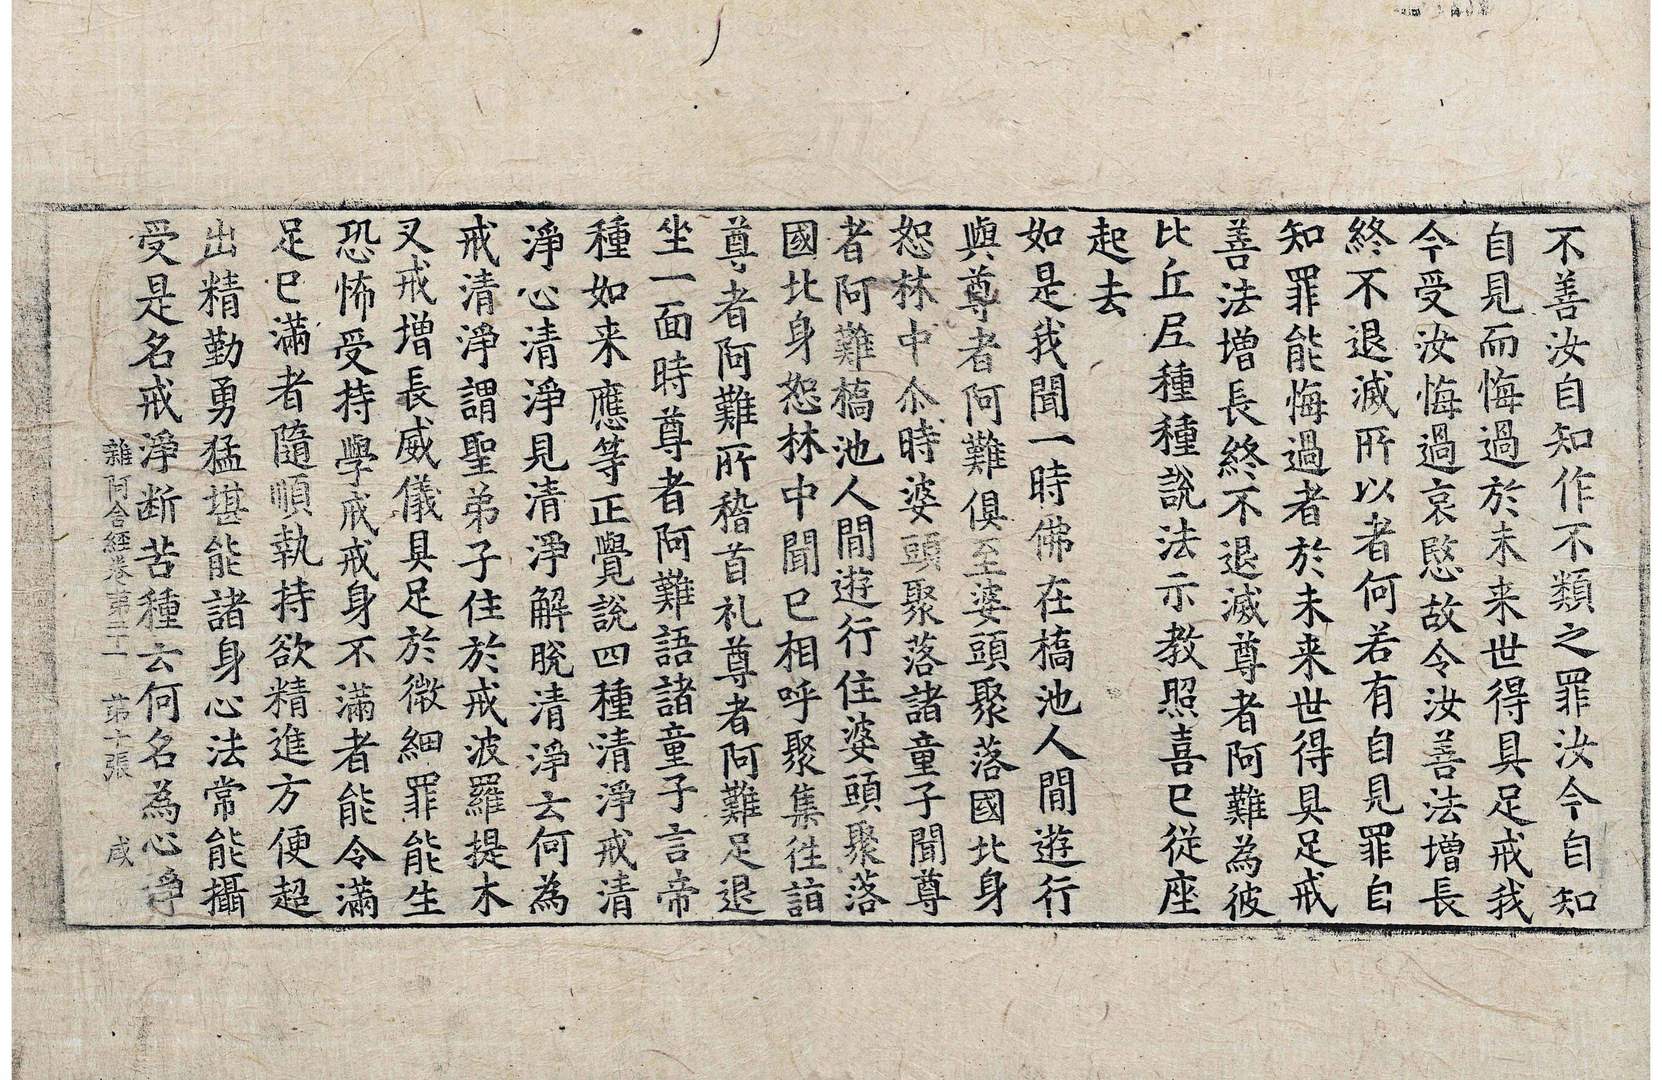 不善汝自知作不類之罪汝今自知
自見而悔過於未来世得具足戒我
今受汝悔過哀愍故令汝善法增長
終不退滅所以者何若有自見罪自
知罪能悔過者於未来世得具足戒
善法增長終不退滅尊者阿難為彼
比丘尼種種說法示教照喜已從座
起去
如是我聞一時佛在橋池人間遊行
與尊者阿難俱至婆頭聚落國北身
恕林中尒時婆頭聚落諸童子聞尊
者阿難橋池人間遊行住婆頭聚落
國北身恕林中聞已相呼聚集往詣
尊者阿難所稽首礼尊者阿難足退
坐一面時尊者阿難語諸童子言帝
種如来應等正覺說四種清淨戒清
淨心清淨見清淨解脫清淨云何為
戒清淨謂聖弟子住於戒波羅提木
叉戒增長威儀具足於微細罪能生
恐怖受持學戒戒身不滿者能令滿
足已滿者隨順執持欲精進方便超
出精勤勇猛堪能諸身心法常能攝
受是名戒淨断苦種云何名為心淨
雜阿含經卷苐二十一 苐十張 咸